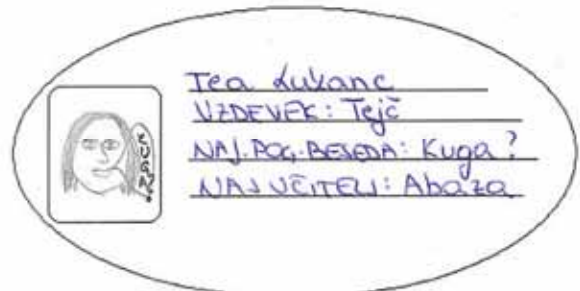 Tea Lukanc
VZDEVEK: Tejč
NAJ. POG. BESEDA: Kuga?
NAJ UČITELJ: Abaza
KUGA?